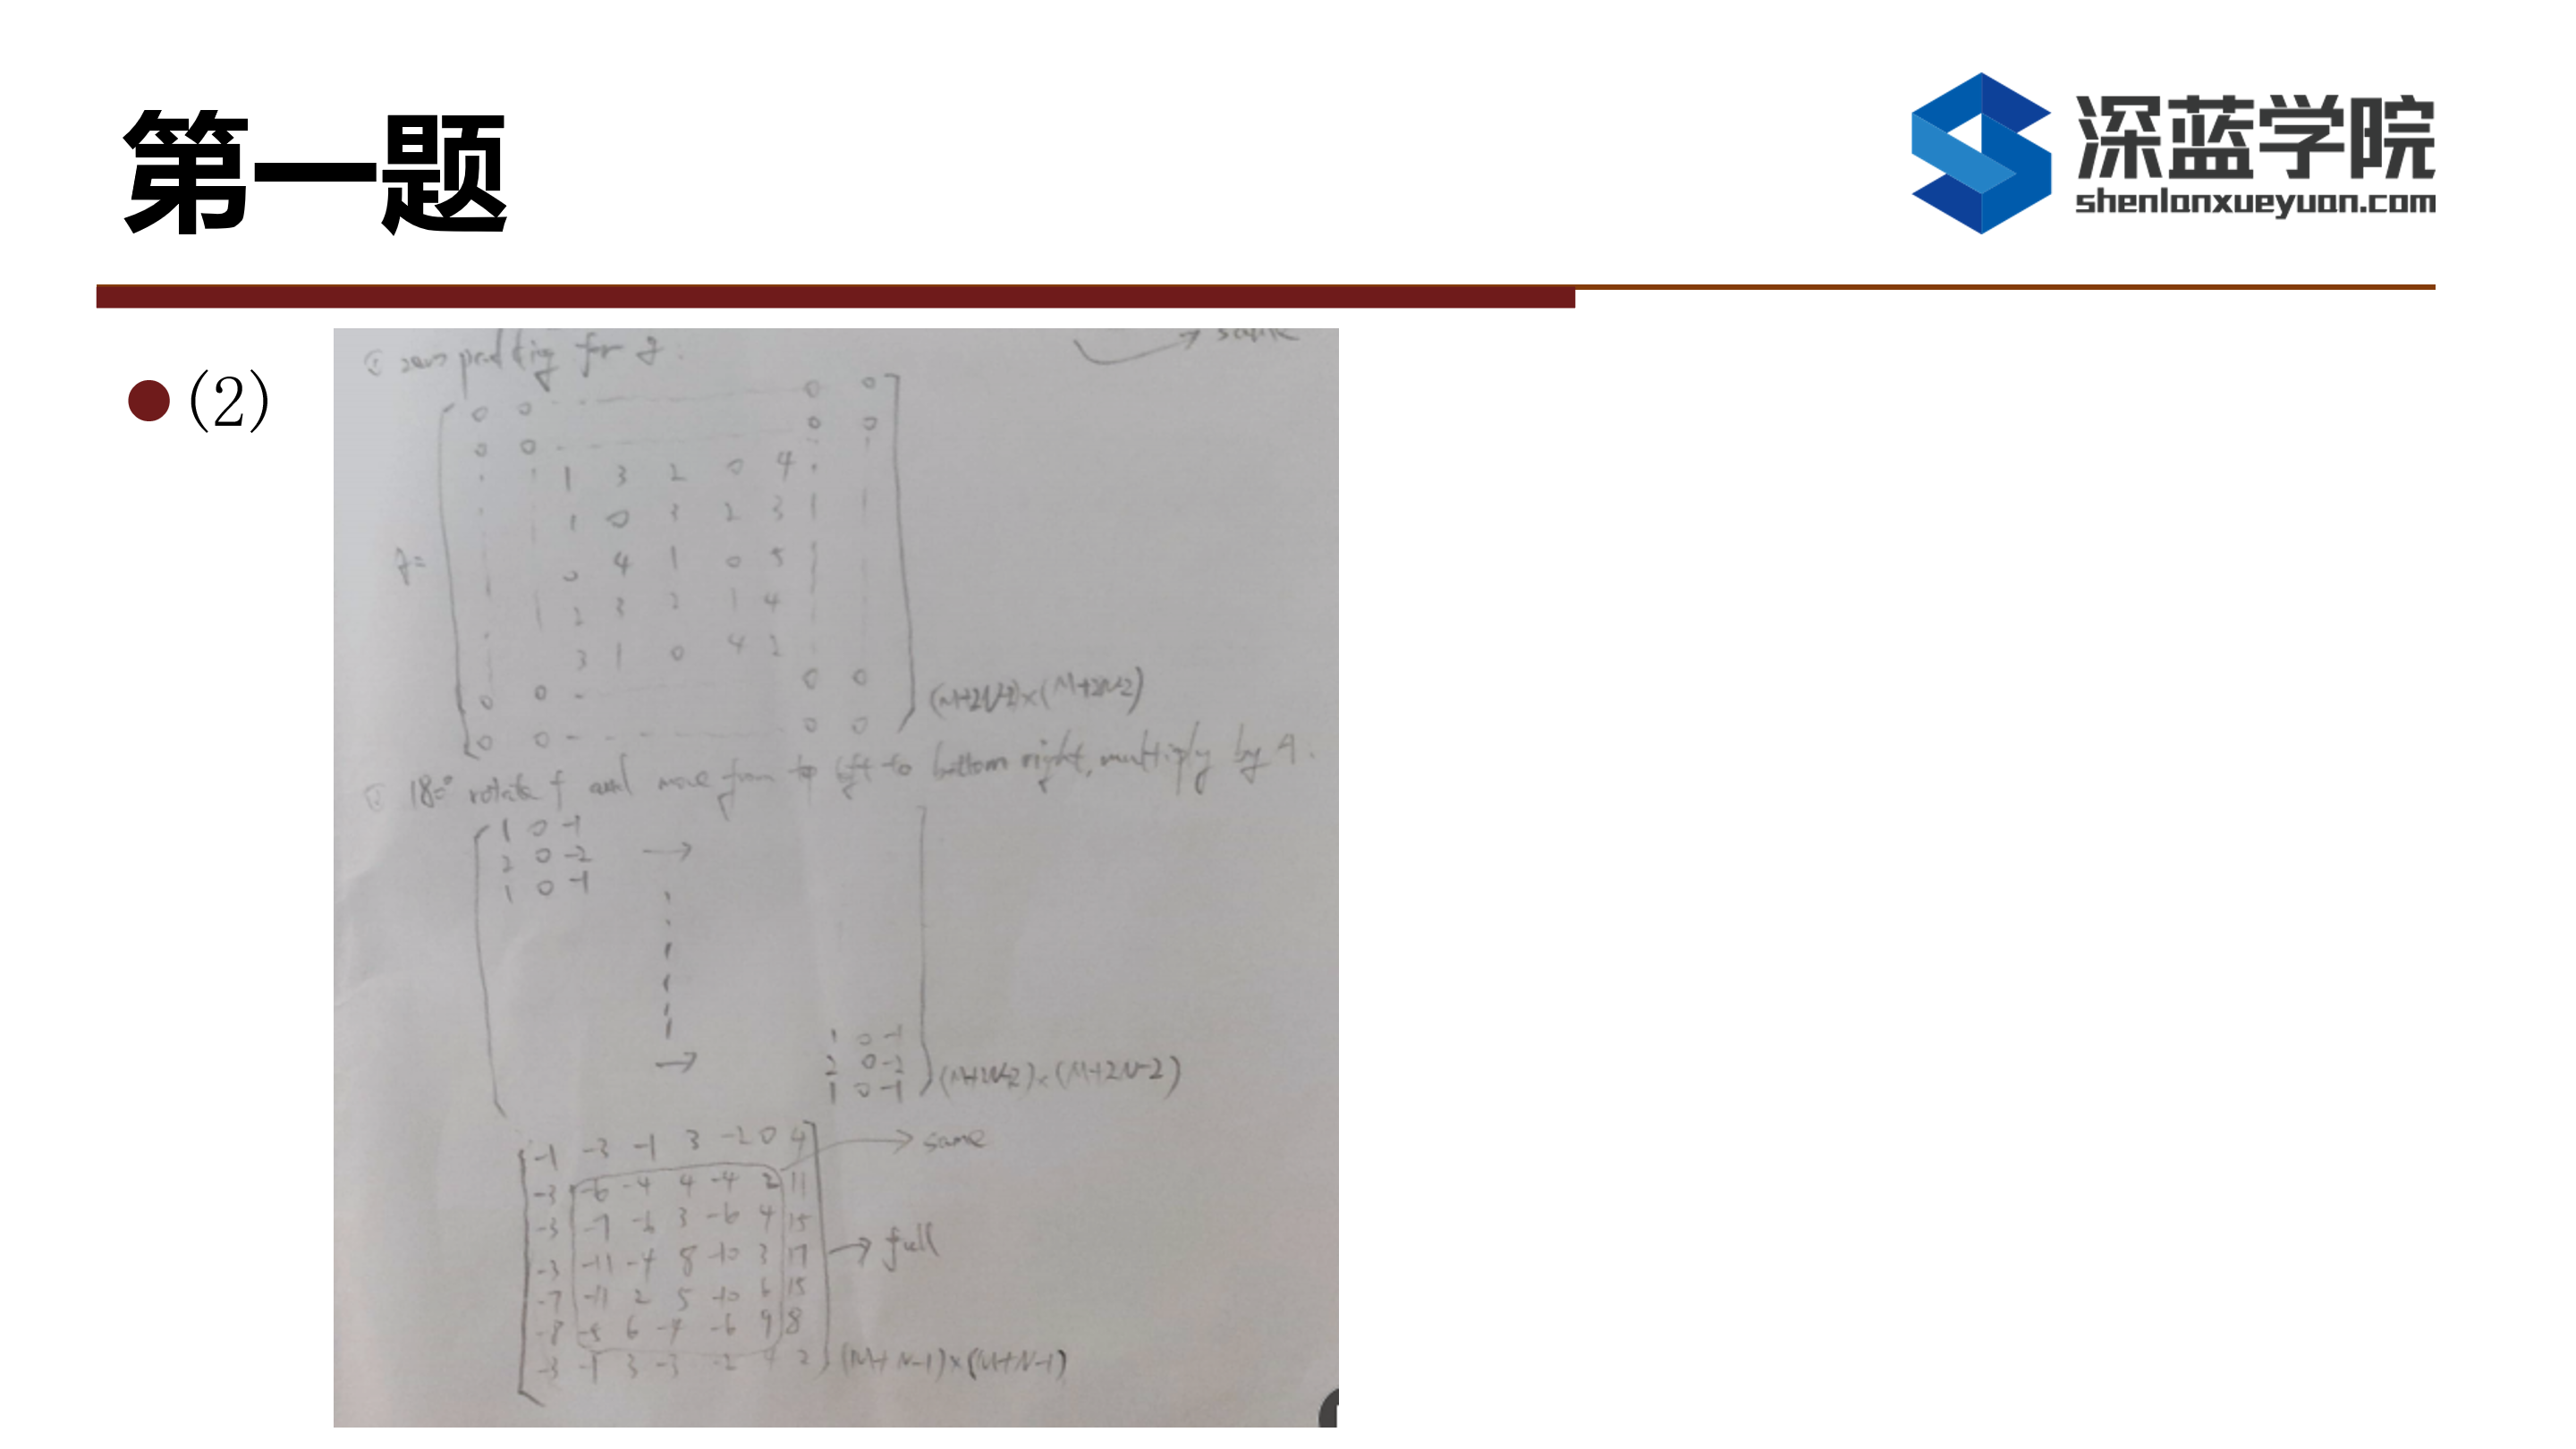 第一题
深蓝学院
shenlanxueyuan.com
(2)
① zero padding for g.
→ same
0 0 - - 0 0
0 0 - 0 0
1 3 2 0 4
1 0 3 2 3
A=
0 4 1 0 5
2 3 2 1 4
3 1 0 4 2
0 0 - 0 0
(M+2N-2)×(M+2N-2)
0 0 - - - 0 0
② 180° rotate f and move from top left to bottom right, multiply by A.
1 0 -1
2 0 -2 →
1 0 -1
1 0 -1
→ 2 0 -2
1 0 -1 (M+2N-2)×(M+2N-2)
-1 -3 -1 3 -2 0 4 → same
-3 -6 -4 4 -4 2 11
-3 -7 -6 3 -6 4 15
-3 -11 -4 8 -10 3 17 → full
-7 -11 2 5 -10 6 15
-8 -5 6 -4 -6 9 8
-3 -1 3 -3 -2 4 2 (M+N-1)×(M+N-1)